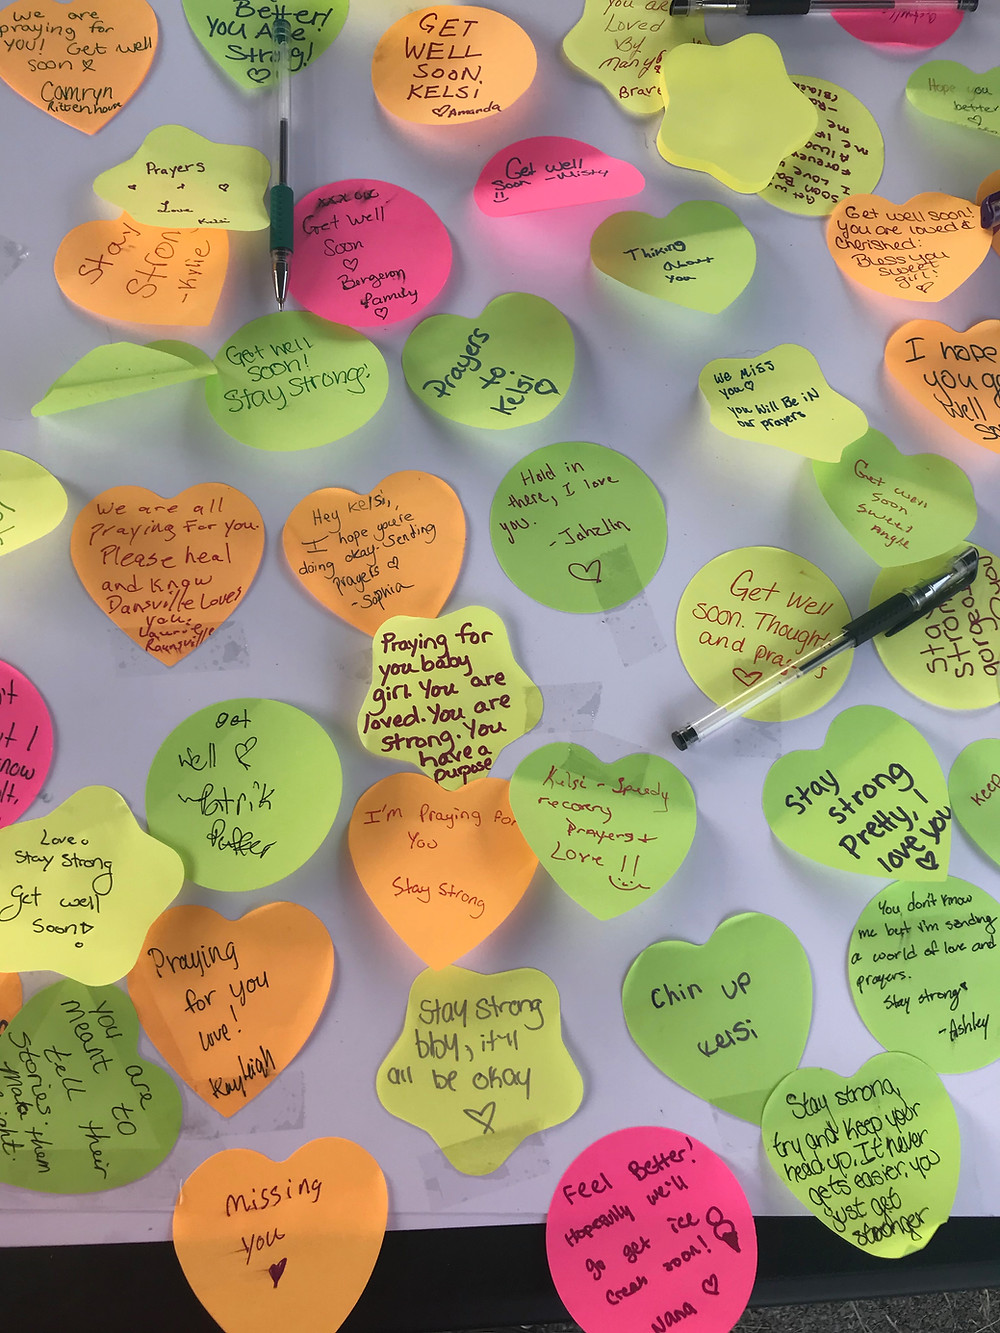 we are
praying for
you! Get well
soon
Camryn
Rittenhouse
Better!
You Are
Strong!
GET
WELL
SOON,
KELSI
Amanda
you are
Loved
By
Many
Brave
Hope you
better
Prayers
Love
Kelsi
Stay
Strong
-Kylie
Get well
Soon
Bergeron
family
Get well
Soon -Misty
Thiking
About
You
Get well soon!
you are loved &
cherished!
Bless you
sweet
girl!
Get well
soon!
Stay Strong!
Prayers
to
Kelsi
We Miss
You
you will Be iN
our prayers
I hope
you g
well
So
Get well
Soon
Sweet
Angle
We are all
Praying For you.
Please heal
and know
Dansville Loves
you.
Hey Kelsi,
I hope you're
doing okay. Sending
prayers
- Sophia
Hold in
there, I love
you.
- Jahelin
Get well
soon. Thoughts
and prayers
Stay
Strong
Praying for
you baby
girl. You are
loved. You are
strong. You
have a
purpose
t I
know
Get
Well
Patrik
Parker
I'm Praying for
You
Stay Strong
Kelsi - Speedy
recovery
Prayers +
Love !!
Stay
strong
Pretty, I
love you
Keep
Love.
Stay Strong
Get well
Soon!
Praying
for you
love!
Kayleigh
You don't know
me but i'm sending
a world of love and
prayers.
Stay strong
-Ashley
Stay Strong
bby, it'll
all be okay
Chin up
Kelsi
You are
meant to
tell their
Stories.
Make them
right.
Stay strong,
try and keep your
head up. It never
gets easier, you
just get
stronger
Missing
you
Feel Better!
Hopefully we'll
go get ice
cream soon!
Nana